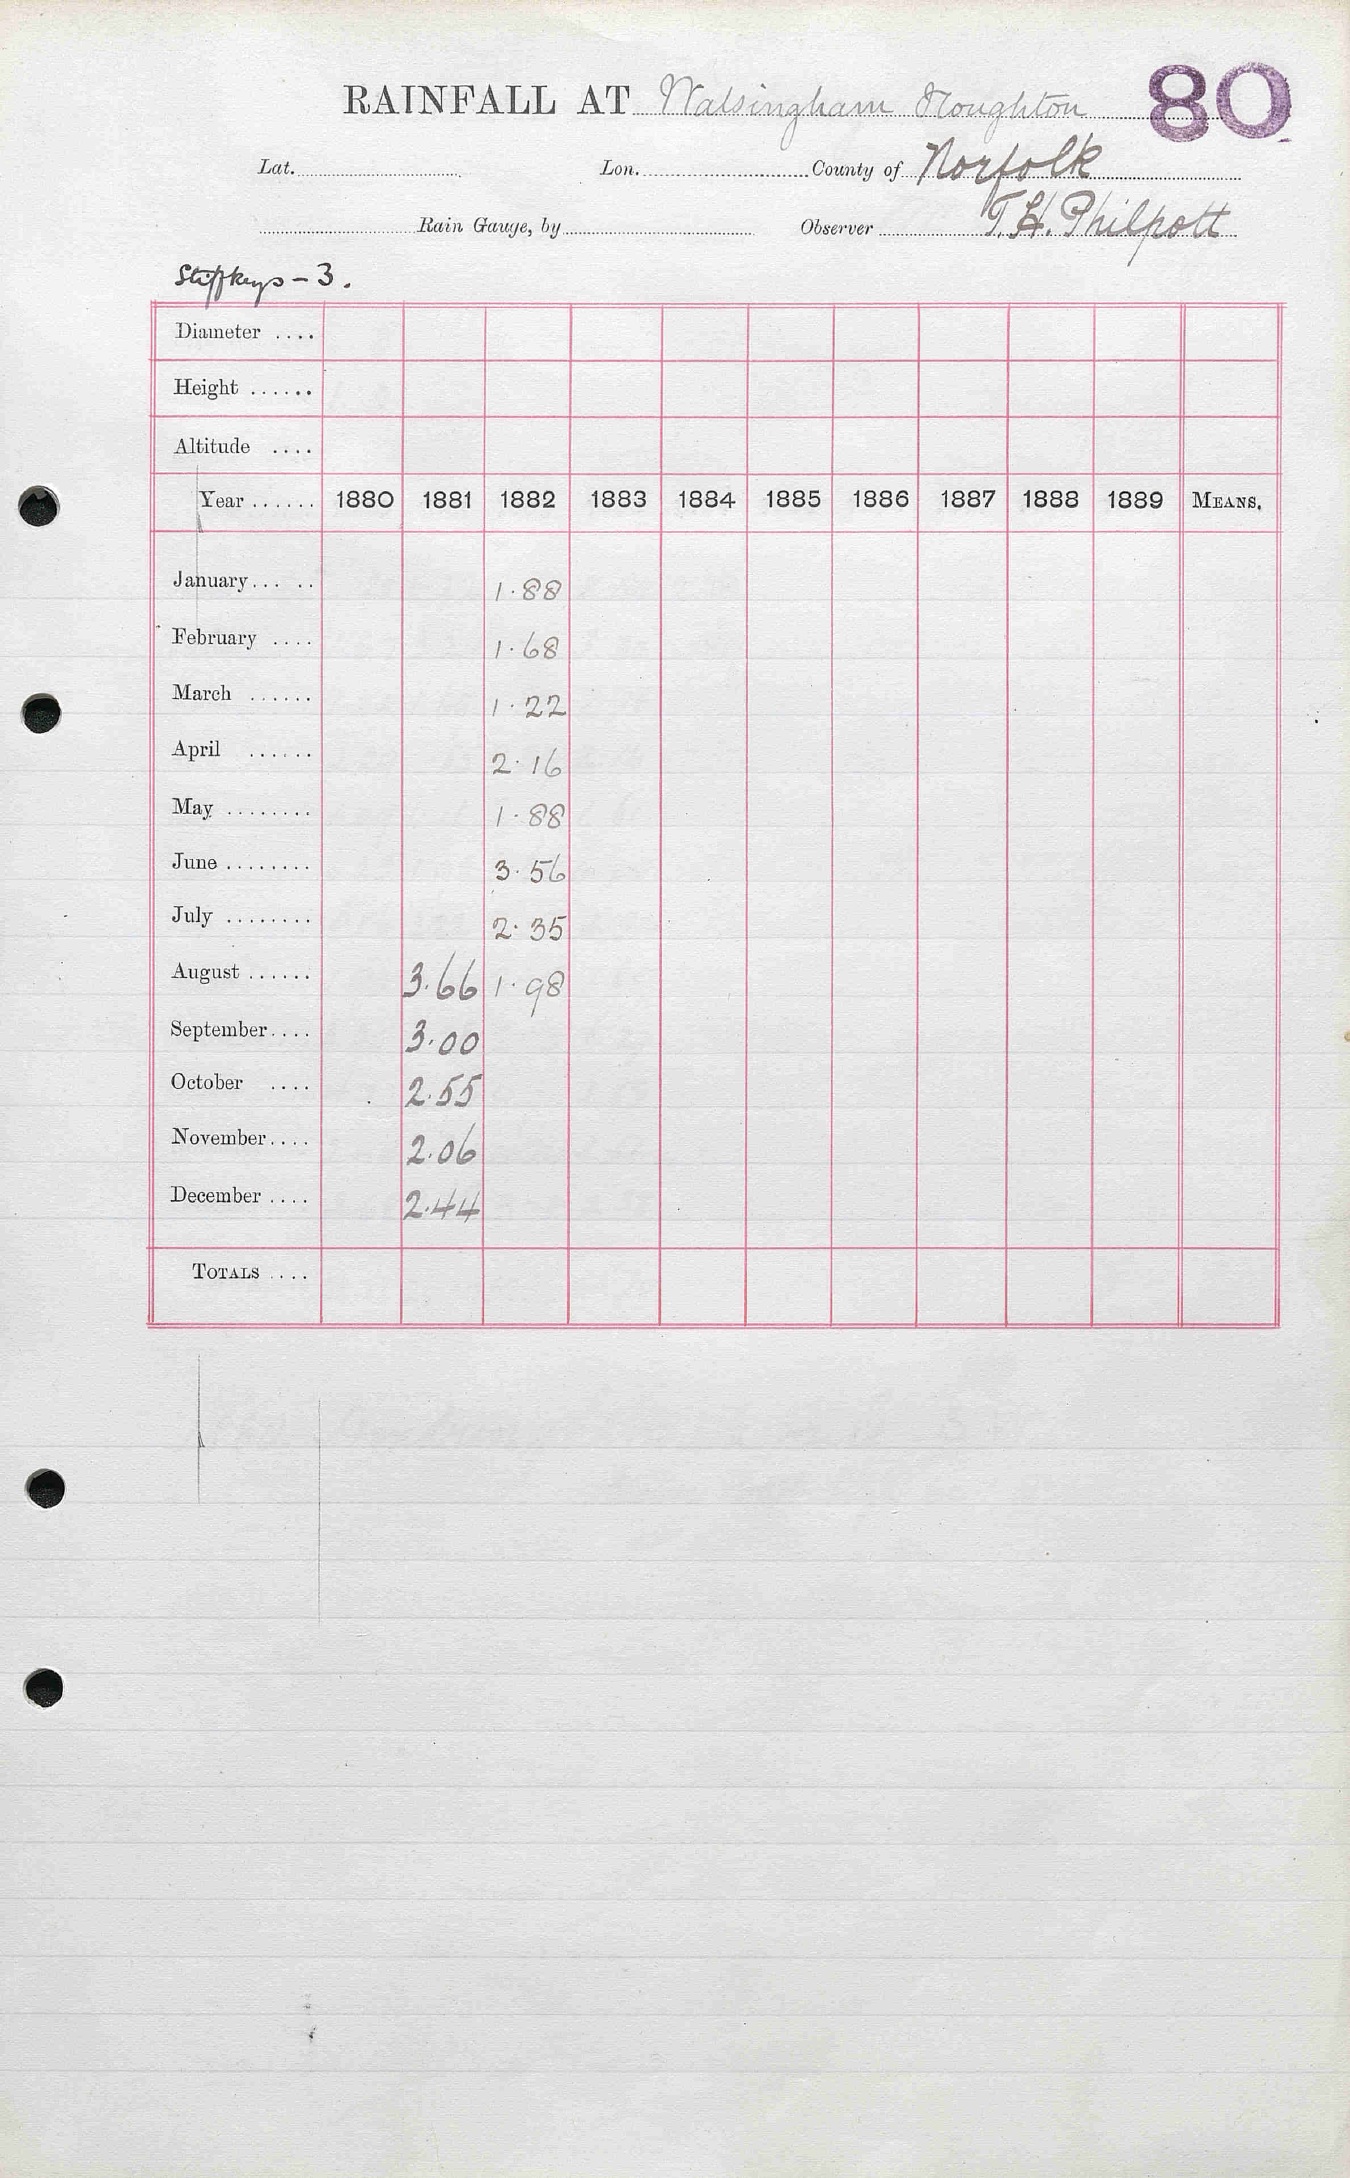 RAINFALL AT Walsingham Houghton 80
Lat. Lon. County of Norfolk
Rain Gauge, by Observer T. H. Philpott
Stiffkey - 3.
Diameter ....
Height ......
Altitude ....
Year ...... 1880 1881 1882 1883 1884 1885 1886 1887 1888 1889 MEANS.
January... .. 1.88
February .... 1.68
March ...... 1.22
April ...... 2.16
May ........ 1.88
June ........ 3.56
July ........ 2.35
August ...... 3.66 1.98
September.... 3.00
October .... 2.55
November.... 2.06
December .... 2.44
TOTALS ....